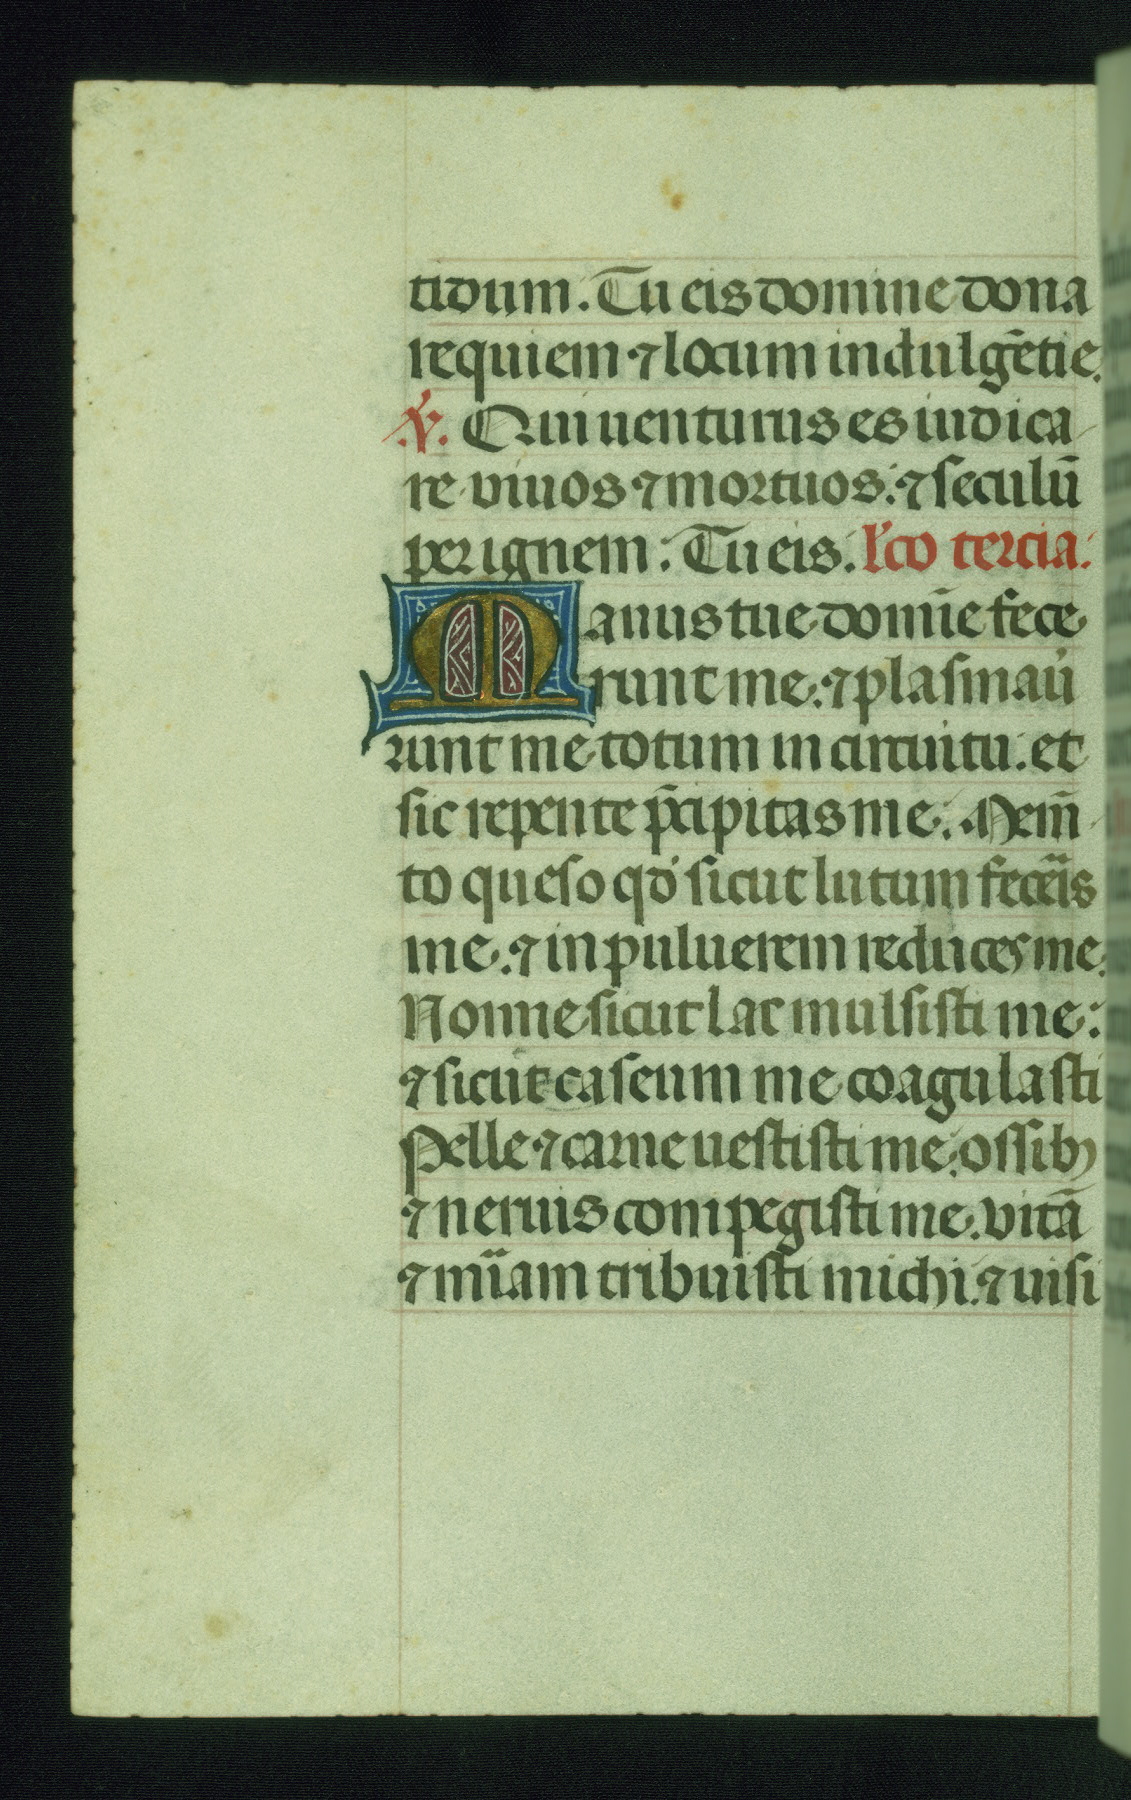 tidum. Tu eis domine dona
requiem ⁊ locum indulgētie.
℣. Qui uenturus es iudica
re viuos ⁊ mortuos: ⁊ seculū
per ignem. Tu eis. l'co tercia.
Manus tue domīe fece
runt me: ⁊ plasmau'
runt me totum in circuitu: et
sic repente p̄cipitas me. Mem̄
to queso qd' sicut lutum fecēis
me. ⁊ in puluerem reduces me.
Nonne sicut lac mulsisti me:
⁊ sicut caseum me coagulasti
Pelle ⁊ carne uestisti me. ossibꝰ
⁊ neruis compegisti me. vitā
⁊ mīam tribuisti michi. ⁊ uisi